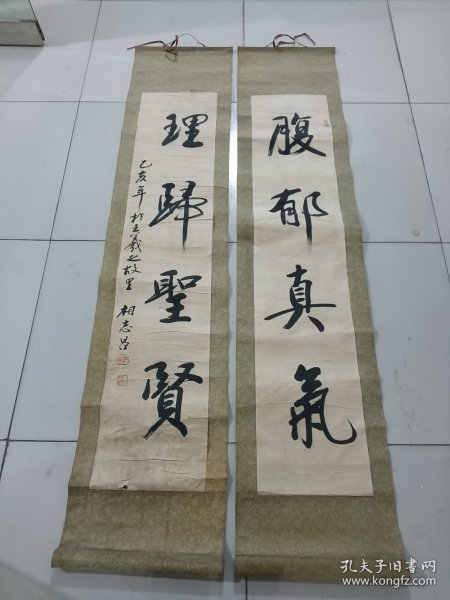 腹郁真氣
理歸聖賢
乙亥年於王羲之故里 相志昌
孔夫子旧书网
www.kongfz.com